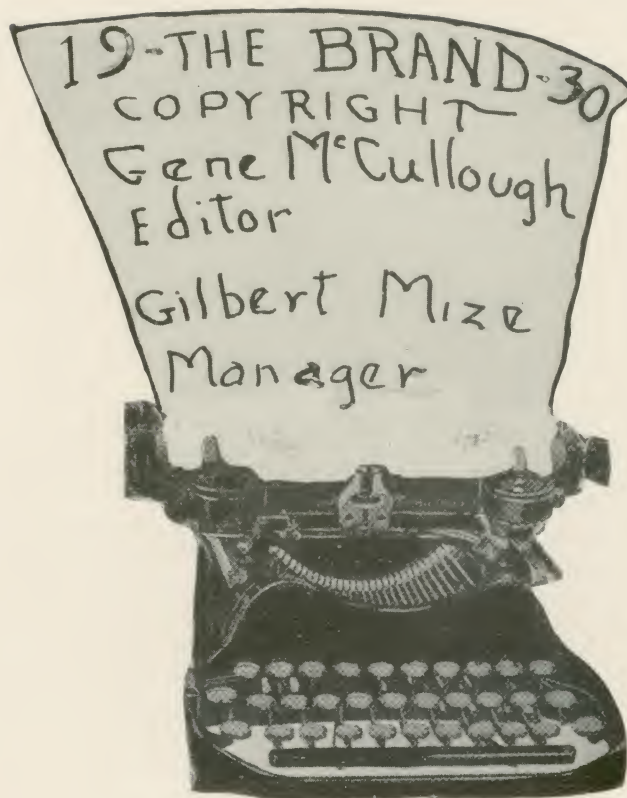 19-THE BRAND-30
COPYRIGHT
Gene McCullough
Editor
Gilbert Mize
Manager